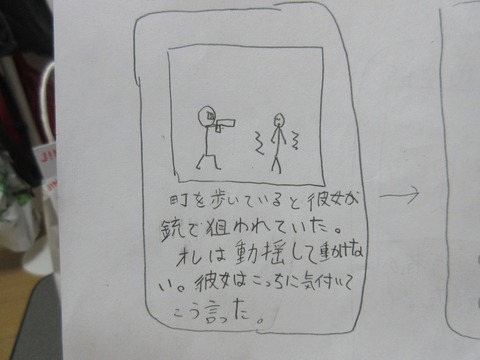 町を歩いていると彼女が
銃で狙われていた。
オレは動揺して動けな
い。彼女はこっちに気付いて
こう言った。